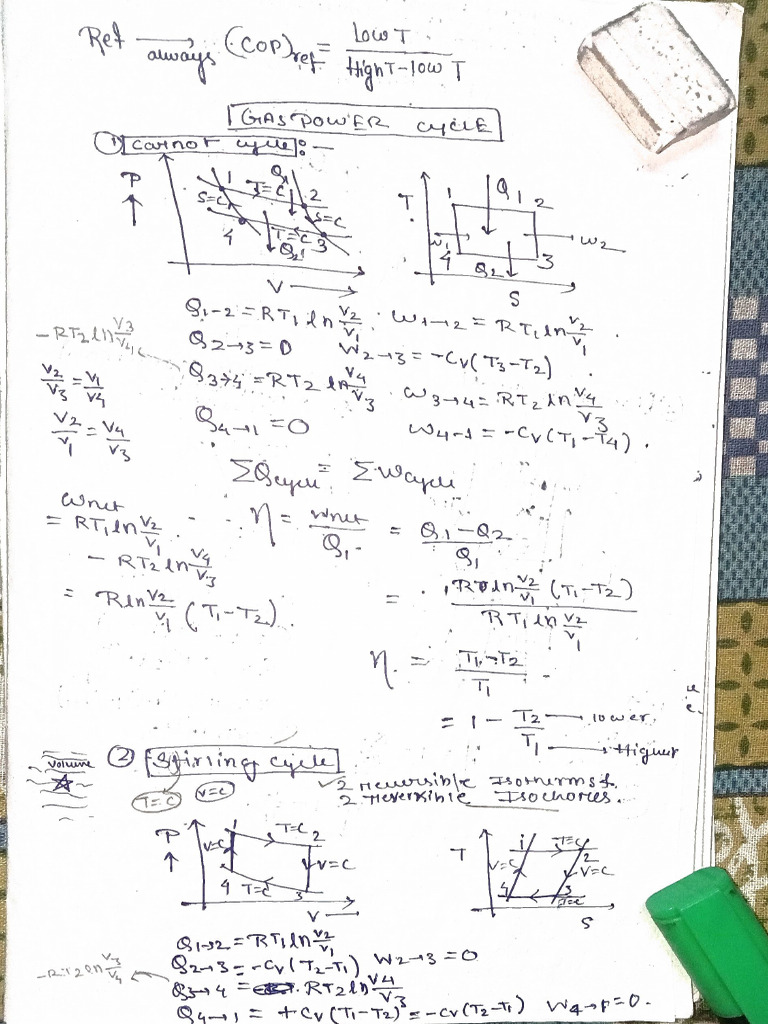 Ref → always (COP)ref = low T / High T - low T
GAS POWER cycle
① Carnot cycle :-
P ↑ 1 T=C Q1 2 S=C S=C 4 T=C 3 Q2 V →
T 1 Q1 2 W1 W2 4 Q2 3 S
Q1-2 = RT1 ln V2/V1 . W1→2 = RT1 ln V2/V1 .
-RT2 ln V3/V4
Q2→3 = 0 W2→3 = -Cv (T3-T2) .
Q3→4 = RT2 ln V4/V3 W3→4 = RT2 ln V4/V3
V2/V3 = V1/V4
Q4→1 = 0 W4-1 = -Cv (T1-T4) .
V2/V1 = V4/V3
ΣQcycle = ΣWcycle
Wnet
= RT1 ln V2/V1 - RT2 ln V4/V3
= R ln V2/V1 (T1-T2) .
η = Wnet/Q1 = Q1-Q2/Q1
= R ln V2/V1 (T1-T2) / RT1 ln V2/V1
η = T1-T2/T1
= 1 - T2/T1 → lower → Higher
volume
② Stirling cycle
T=C V=C
✓ 2 reversible Isotherms &
2 reversible Isochories.
P ↑ 1 T=C 2 V=C V=C 4 T=C 3 V →
T 1 T=C 2 V=C V=C 4 3 T=C S
Q1→2 = RT1 ln V2/V1
Q2→3 = -Cv (T2-T1) W2→3 = 0
-RT2 ln V3/V4
Q3→4 = RT2 ln V4/V3
Q4→1 = +Cv (T1-T2) = -Cv (T2-T1) W4→1 = 0.